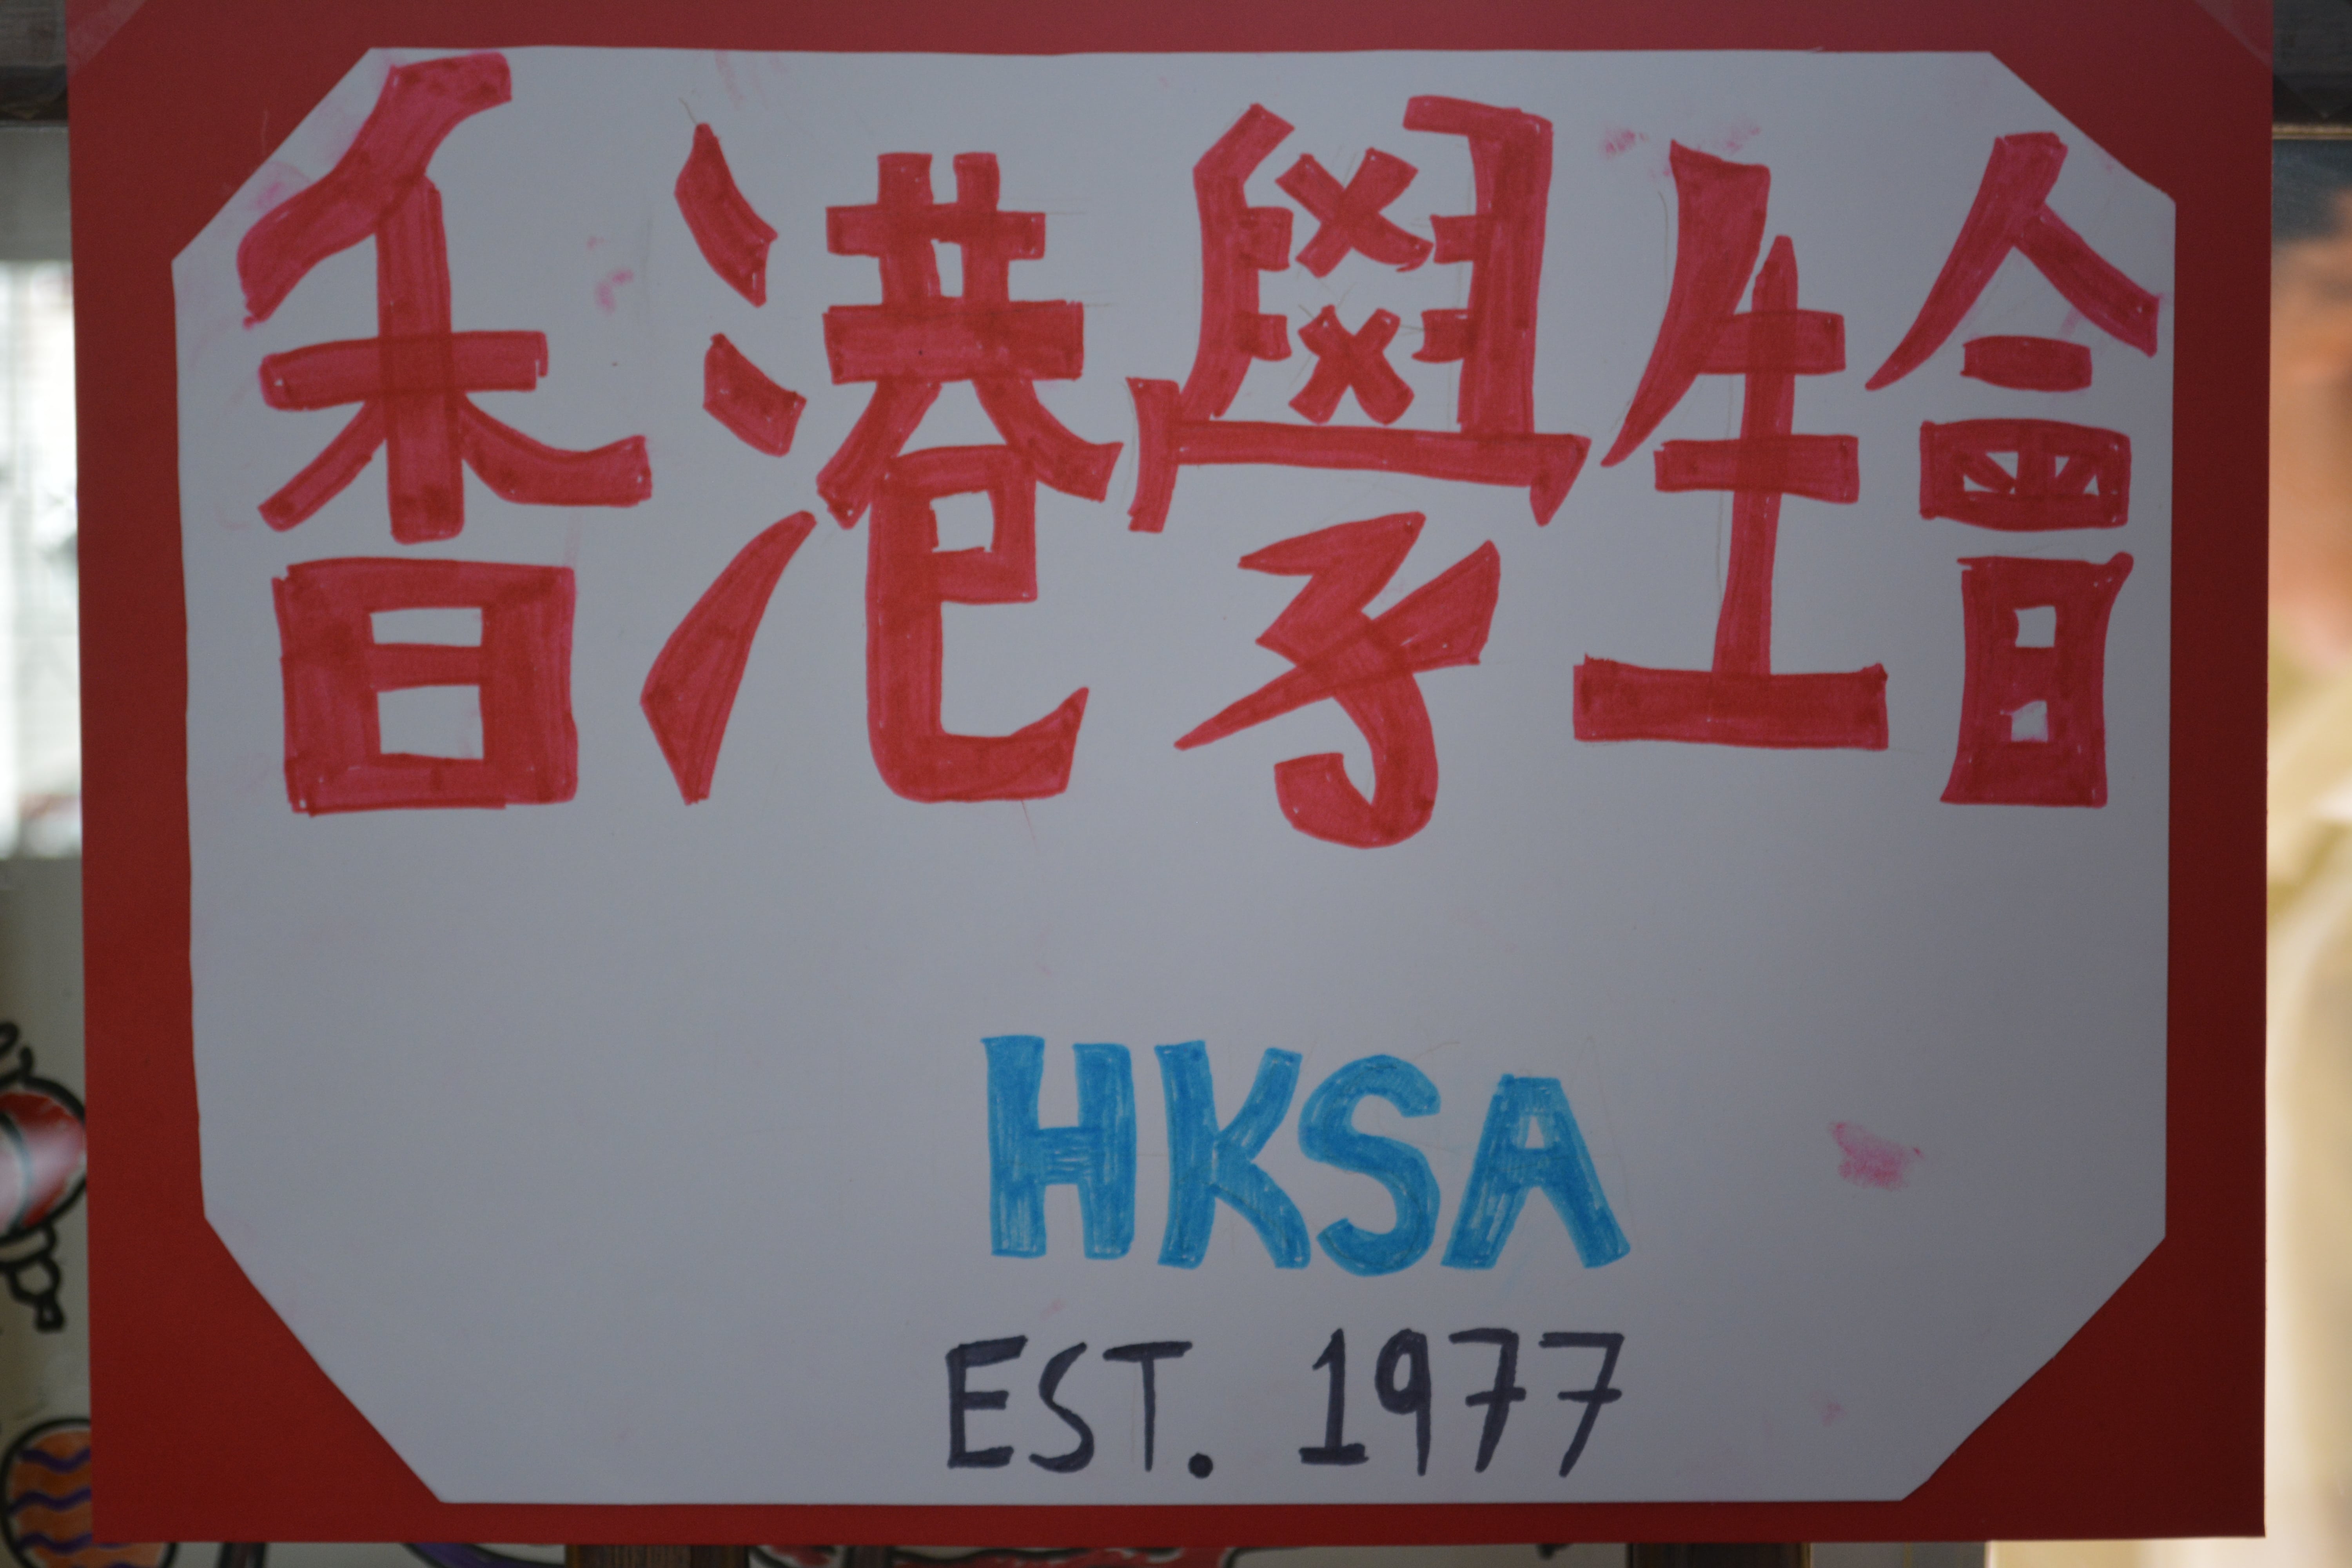 香港學生會
HKSA
EST. 1977